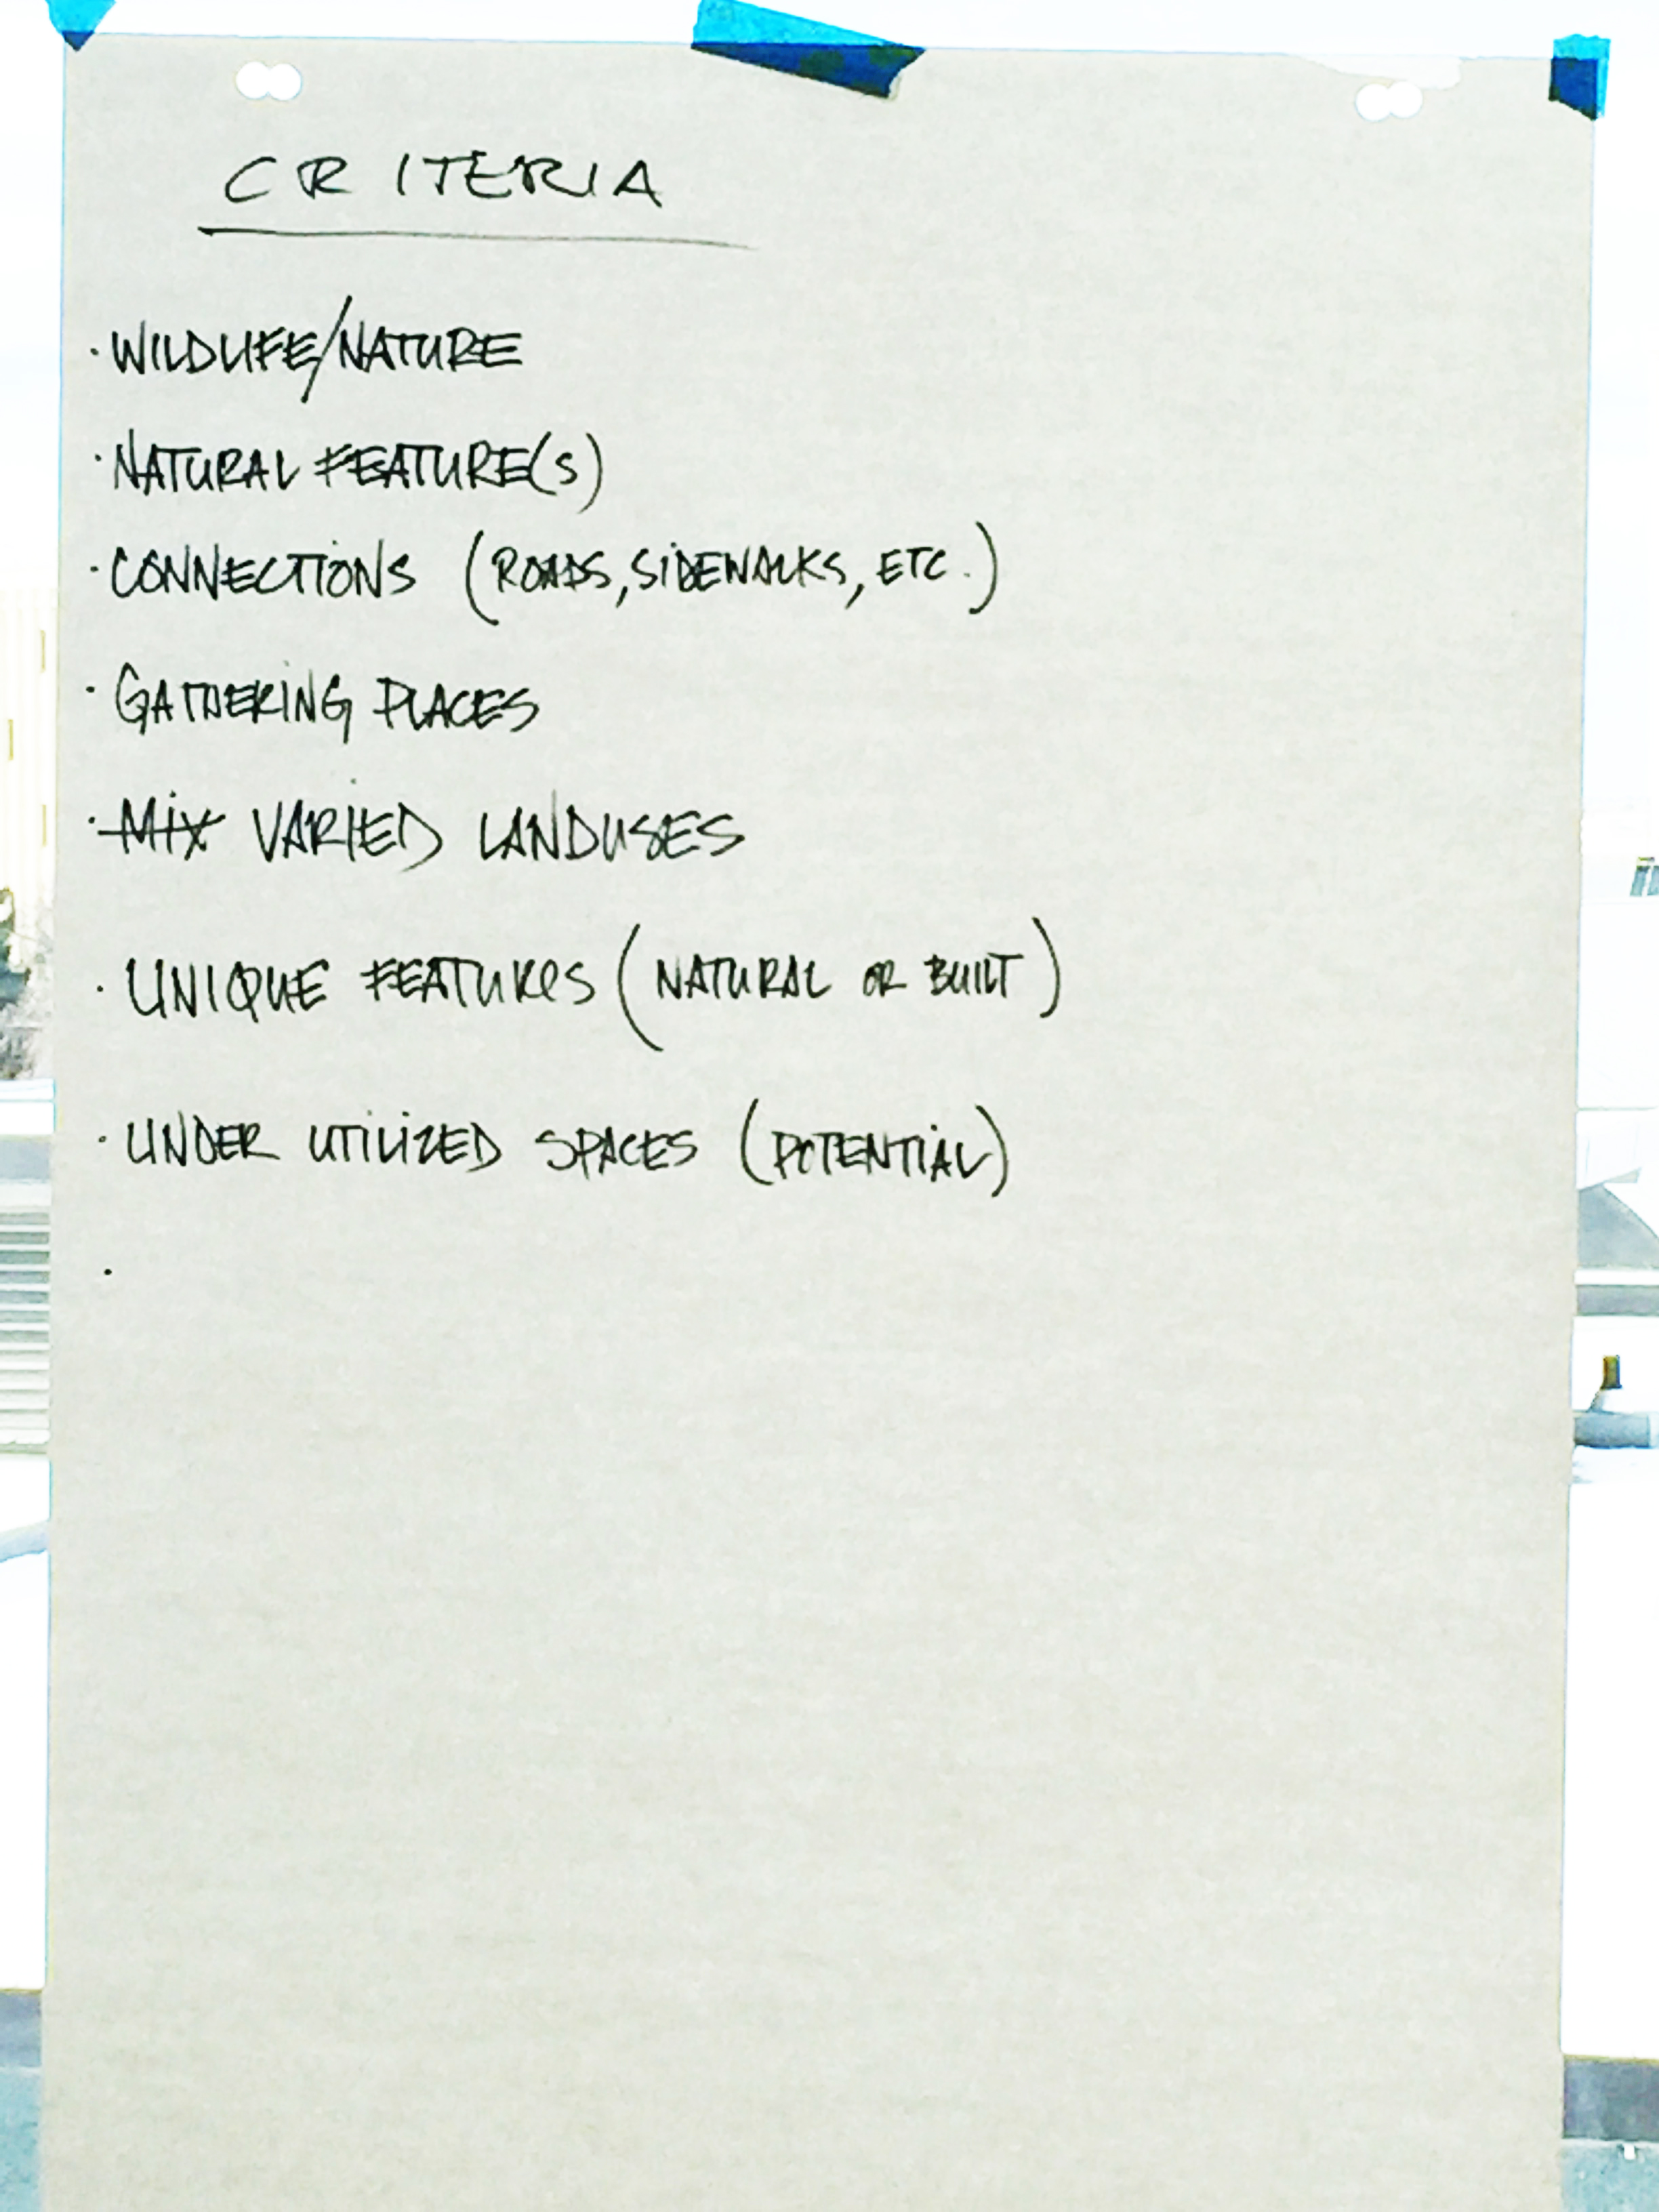 CRITERIA
· WILDLIFE/NATURE
· NATURAL FEATURE(S)
· CONNECTIONS (ROADS, SIDEWALKS, ETC.)
· GATHERING PLACES
· MIX VARIED LANDUSES
· UNIQUE FEATURES (NATURAL OR BUILT)
· UNDER UTILIZED SPACES (POTENTIAL)
·